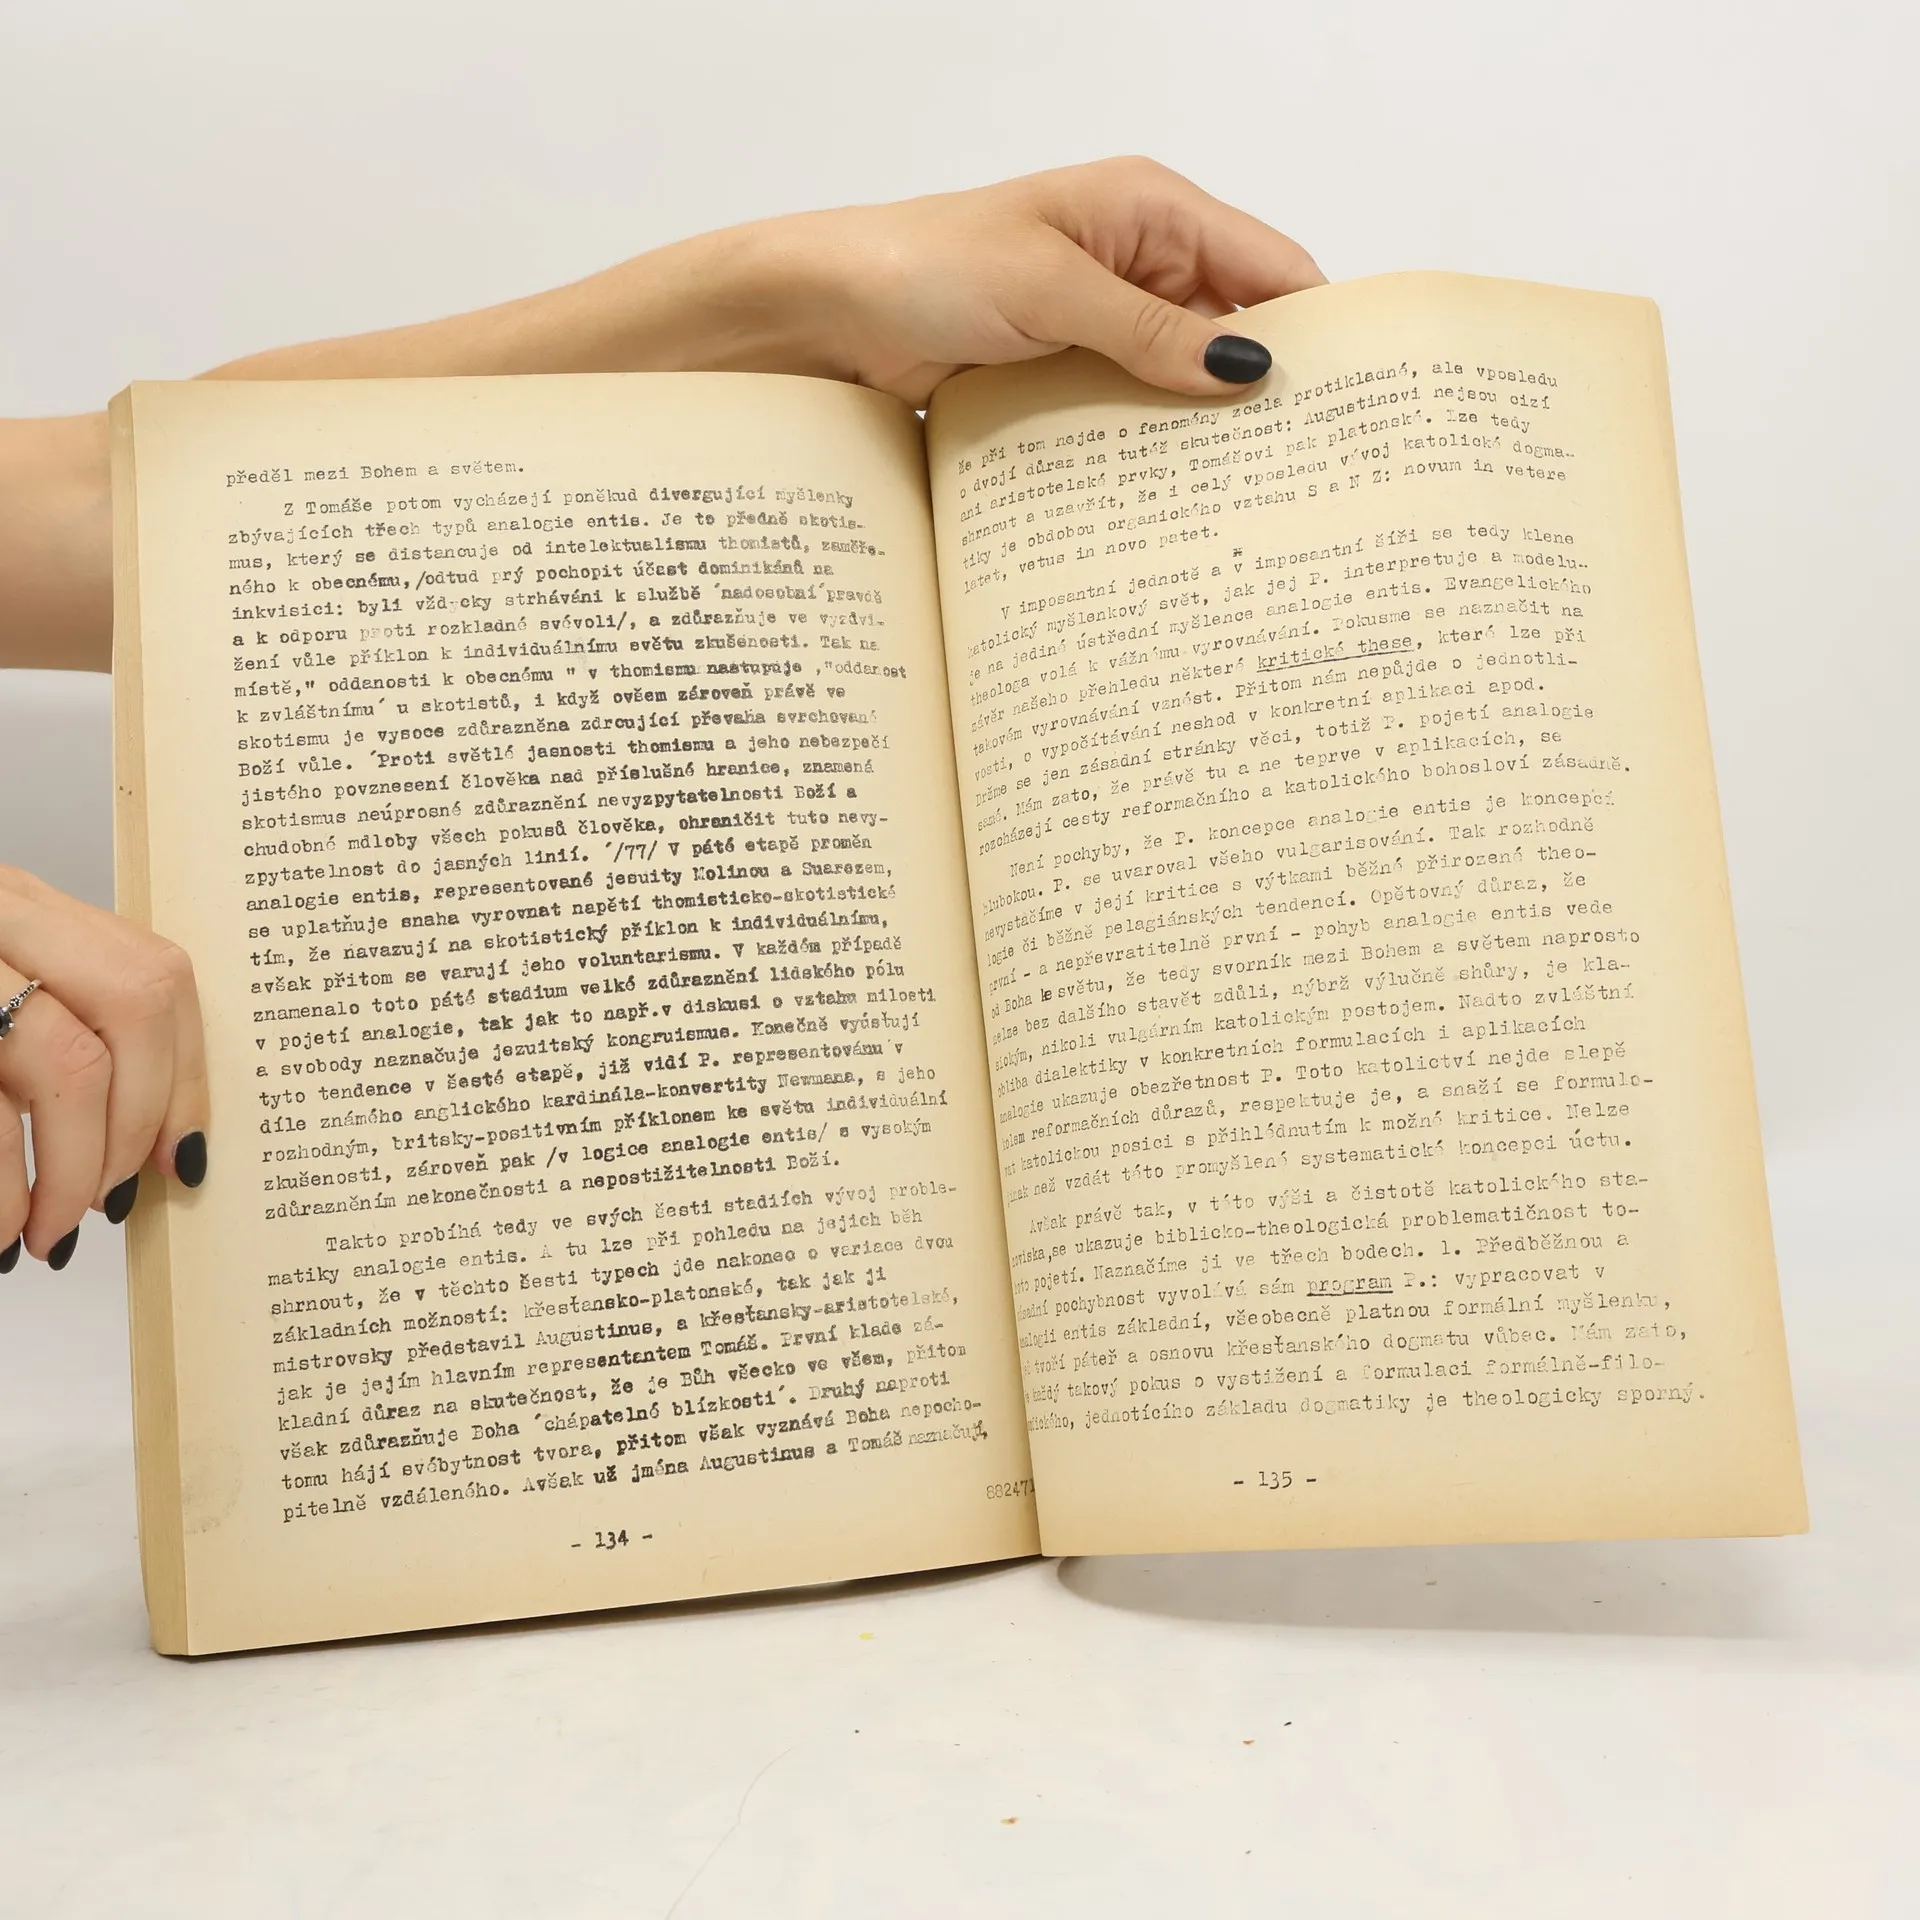 předěl mezi Bohem a světem.
Z Tomáše potom vycházejí poněkud divergující myšlenky
zbývajících třech typů analogie entis. Je to předně skotis-
mus, který se distancuje od intelektualismu thomistů, zaměře-
ného k obecnému, /odtud prý pochopit účast dominikánů na
inkvisici: byli vždycky strháváni k službě ´nadosobní´pravdě
a k odporu proti rozkladné svévoli/, a zdůrazňuje ve vyzdvi-
žení vůle příklon k individuálnímu světu zkušenosti. Tak na
místě," oddanosti k obecnému " v thomismu nastupuje ,"oddanost
k zvláštnímu´ u skotistů, i když ovšem zároveň právě ve
skotismu je vysoce zdůrazněna zdrcující převaha svrchované
Boží vůle. ´Proti světlé jasnosti thomismu a jeho nebezpečí
jistého povznesení člověka nad příslušné hranice, znamená
skotismus neúprosné zdůraznění nevyzpytatelnosti Boží a
chudobné mdloby všech pokusů člověka, ohraničit tuto nevy-
zpytatelnost do jasných linií. ´/77/ V páté etapě proměn
analogie entis, representované jesuity Molinou a Suarezem,
se uplatňuje snaha vyrovnat napětí thomisticko-skotistické
tím, že navazují na skotistický příklon k individuálnímu,
avšak přitom se varují jeho voluntarismu. V každém případě
znamenalo toto páté stadium velké zdůraznění lidského pólu
v pojetí analogie, tak jak to např.v diskusi o vztahu milosti
a svobody naznačuje jezuitský kongruismus. Konečně vyúsťují
tyto tendence v šesté etapě, již vidí P. representovánu v
díle známého anglického kardinála-konvertity Newmana, s jeho
rozhodným, britsky-positivním příklonem ke světu individuální
zkušenosti, zároveň pak /v logice analogie entis/ s vysokým
zdůrazněním nekonečnosti a nepostižitelnosti Boží.
Takto probíhá tedy ve svých šesti stadiích vývoj proble-
matiky analogie entis. A tu lze při pohledu na jejich běh
shrnout, že v těchto šesti typech jde nakonec o variace dvou
základních možností: křesťansko-platonské, tak jak ji
mistrovsky představil Augustinus, a křesťansky-aristotelské,
jak je jejím hlavním representantem Tomáš. První klade zá-
kladní důraz na skutečnost, že je Bůh všecko ve všem, přitom
však zdůrazňuje Boha ´chápatelné blízkosti´. Druhý naproti
tomu hájí svébytnost tvora, přitom však vyznává Boha nepocho-
pitelně vzdáleného. Avšak už jména Augustinus a Tomáš naznačují,
- 134 -
882471
že při tom nejde o fenomény zcela protikladné, ale vposledu
o dvojí důraz na tutéž skutečnost: Augustinovi nejsou cizí
ani aristotelské prvky, Tomášovi pak platonské. Lze tedy
shrnout a uzavřít, že i celý vposledu vývoj katolické dogma-
tiky je obdobou organického vztahu S a N Z: novum in vetere
latet, vetus in novo patet.
V imposantní jednotě a v imposantní šíři se tedy klene
katolický myšlenkový svět, jak jej P. interpretuje a modelu-
je na jediné ústřední myšlence analogie entis. Evangelického
theologa volá k vážnému vyrovnávání. Pokusme se naznačit na
závěr našeho přehledu některé kritické these, které lze při
takovém vyrovnávání vznést. Přitom nám nepůjde o jednotli-
vosti, o vypočítávání neshod v konkretní aplikaci apod.
Držme se jen zásadní stránky věci, totiž P. pojetí analogie
samé. Mám zato, že právě tu a ne teprve v aplikacích, se
rozcházejí cesty reformačního a katolického bohosloví zásadně.
Není pochyby, že P. koncepce analogie entis je koncepcí
hlubokou. P. se uvaroval všeho vulgarisování. Tak rozhodně
nevystačíme v její kritice s výtkami běžné přirozené theo-
logie či běžně pelagiánských tendencí. Opětovný důraz, že
první - a nepřevratitelně první - pohyb analogie entis vede
od Boha ke světu, že tedy svorník mezi Bohem a světem naprosto
nelze bez dalšího stavět zdůli, nýbrž výlučně shůry, je kla-
sickým, nikoli vulgárním katolickým postojem. Nadto zvláštní
obliba dialektiky v konkretních formulacích i aplikacích
analogie ukazuje obezřetnost P. Toto katolictví nejde slepě
kolem reformačních důrazů, respektuje je, a snaží se formulo-
vat katolickou posici s přihlédnutím k možné kritice. Nelze
jinak než vzdát této promyšlené systematické koncepci úctu.
Avšak právě tak, v této výši a čistotě katolického sta-
noviska,se ukazuje biblicko-theologická problematičnost to-
hoto pojetí. Naznačíme ji ve třech bodech. 1. Předběžnou a
zásadní pochybnost vyvolává sám program P.: vypracovat v
analogii entis základní, všeobecně platnou formální myšlenku,
jež tvoří páteř a osnovu křesťanského dogmatu vůbec. Mám zato,
že každý takový pokus o vystižení a formulaci formálně-filo-
sofického, jednotícího základu dogmatiky je theologicky sporný.
- 135 -